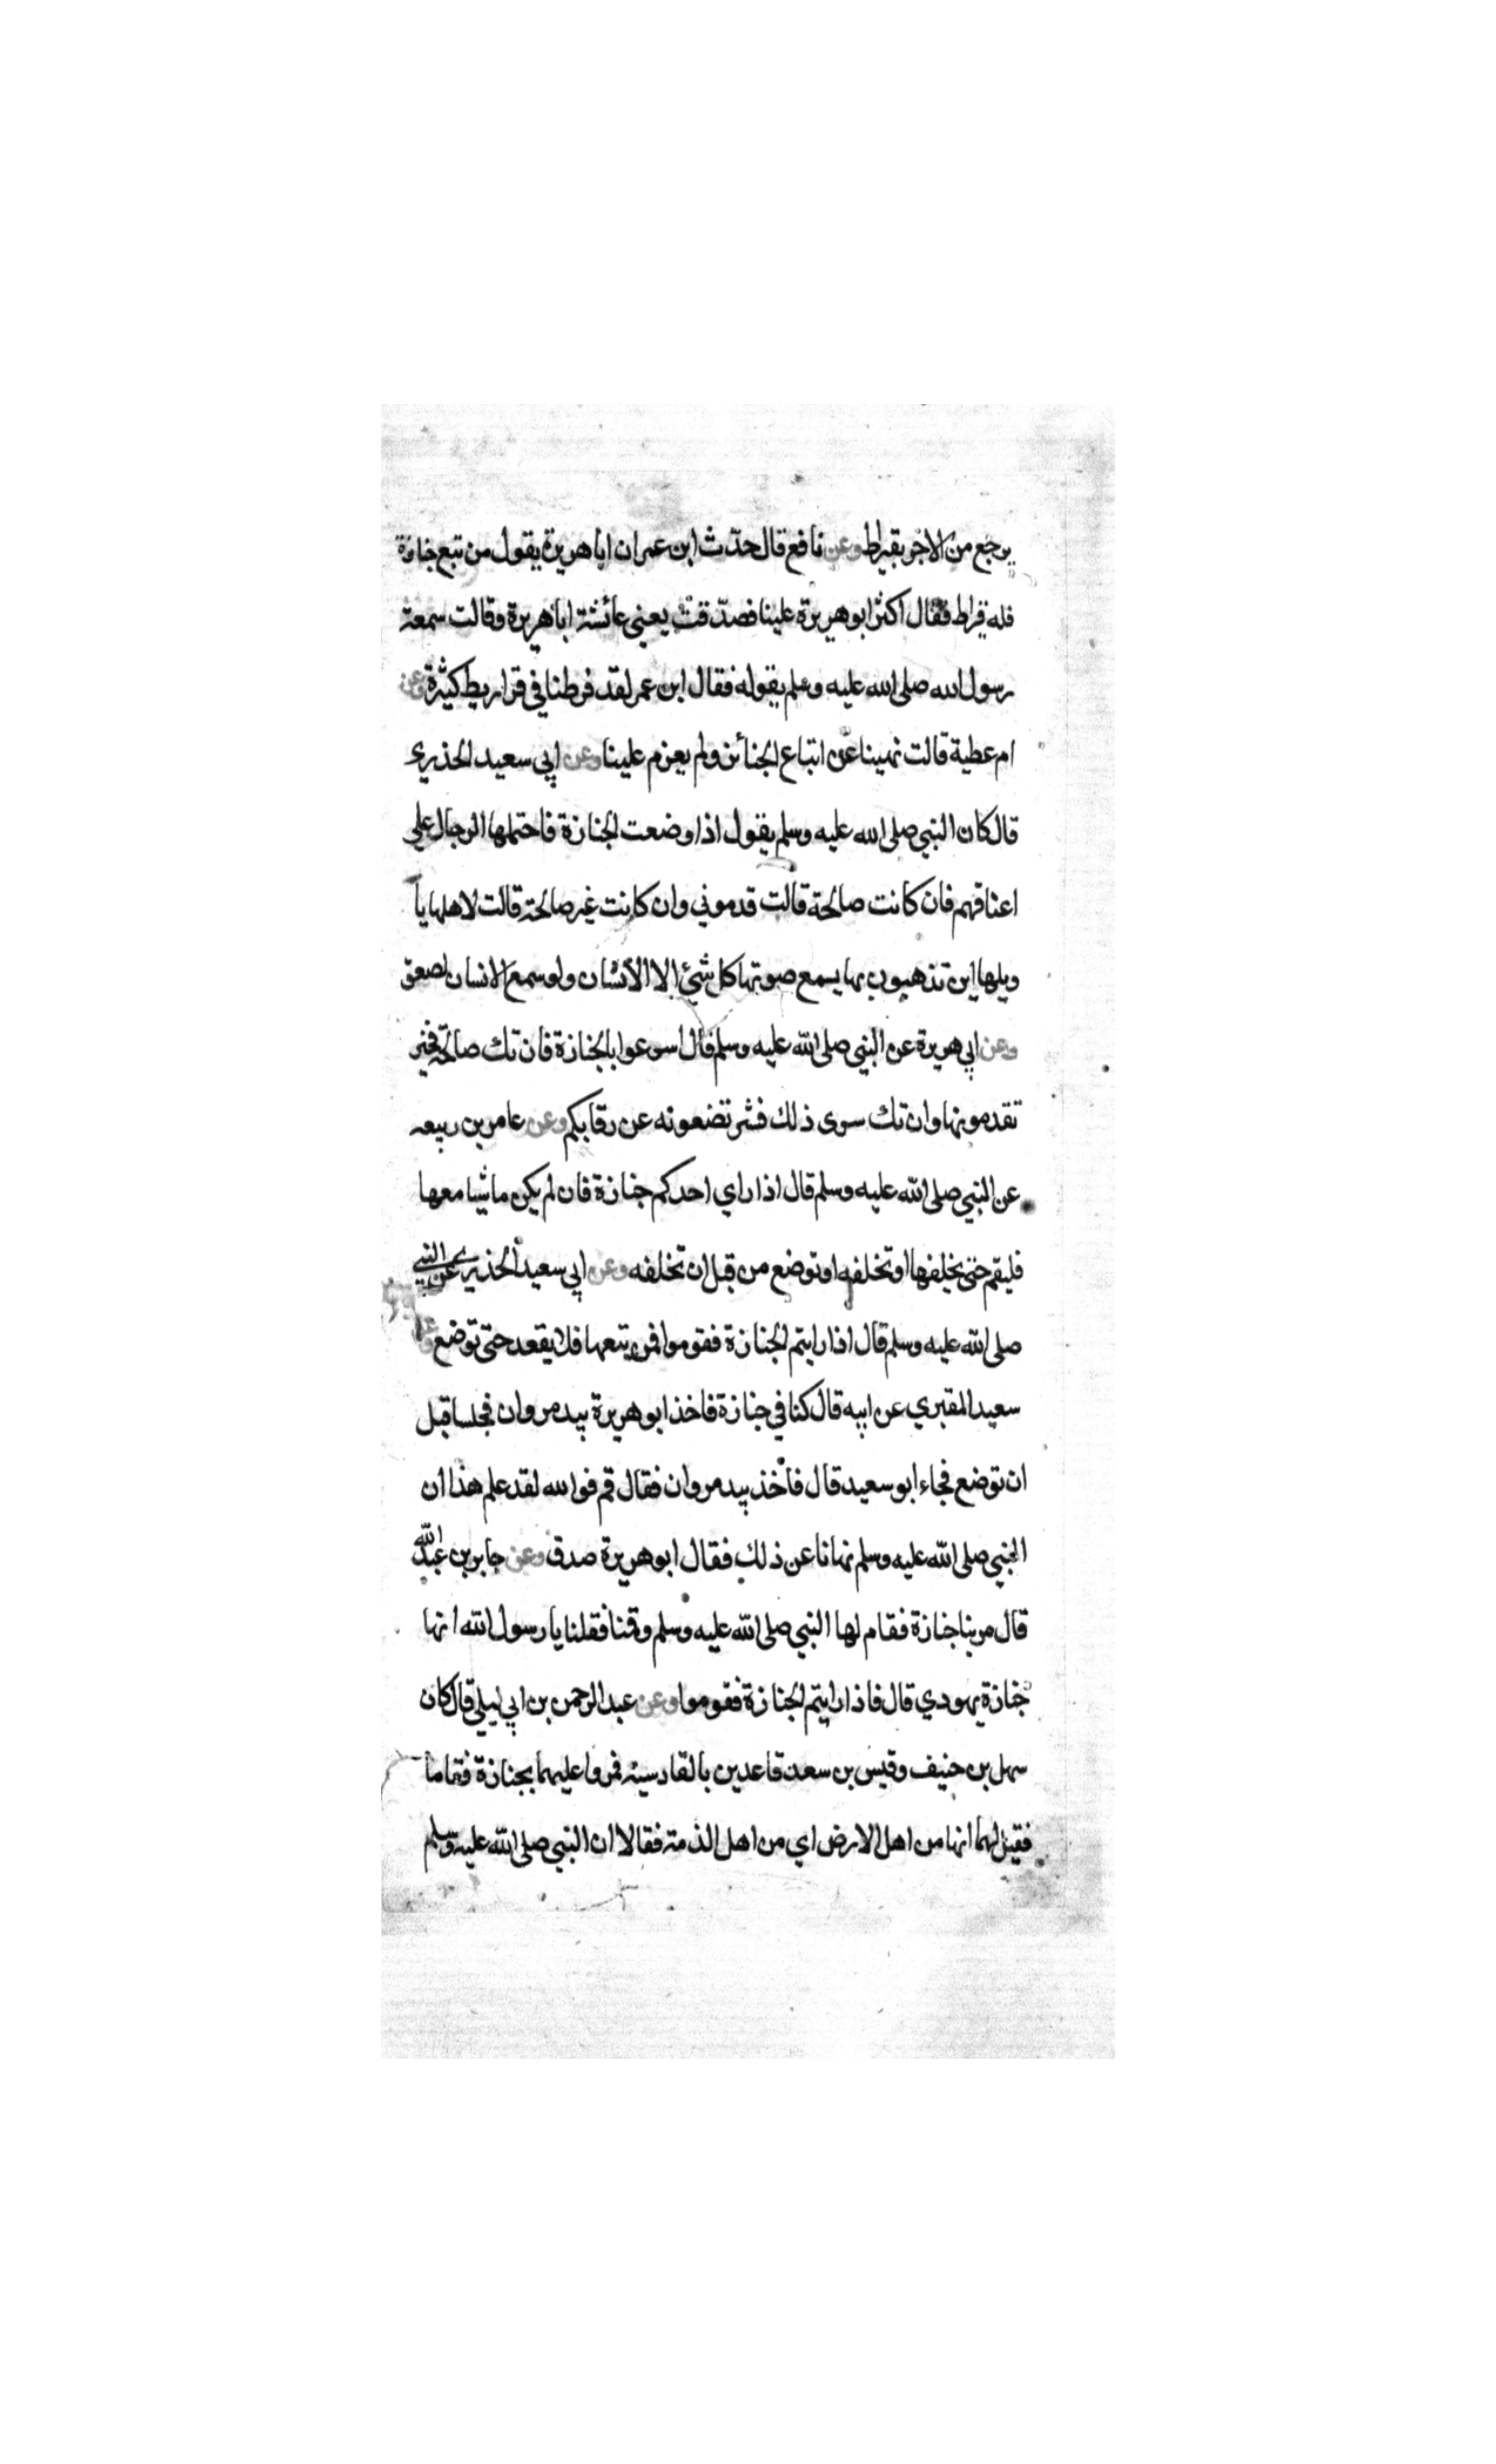 يرجع من الاجر بقيراط وعن نافع قال حدّث ابن عمر ان ابا هريرة يقول من تبع جنازة
فله قيراط فقال اكثر ابو هريرة علينا فصدّقت يعني عائشة ابا هريرة وقالت سمعت
رسول الله صلى الله عليه وسلم يقوله فقال ابن عمر لقد فرطنا في قراريط كثيرة وعن
ام عطية قالت نهينا عن اتباع الجنائز ولم يعزم علينا وعن ابي سعيد الخذري
قال كان النبي صلى الله عليه وسلم يقول اذا وضعت الجنازة فاحتملها الرجال على
اعناقهم فان كانت صالحة قالت قدموني وان كانت غير صالحة قالت لاهلها يا
ويلها اين تذهبون بها يسمع صوتها كل شئ الا الانسان ولو سمع الانسان لصعق
وعن ابي هريرة عن النبي صلى الله عليه وسلم قال اسرعوا بالجنازة فان تك صالحة فخير
تقدمونها وان تك سوى ذلك فشر تضعونه عن رقابكم وعن عامر بن ربيعه
عن النبي صلى الله عليه وسلم قال اذا راي احدكم جنازة فان لم يكن ماشيا معها
فليقم حتى يخلفها او تخلفه او توضع من قبل ان تخلفه وعن ابي سعيد الخذري عن النبي
صلى الله عليه وسلم قال اذا رايتم الجنازة فقوموا فمن تبعها فلا يقعد حتى توضع وعن
سعيد المقبري عن ابيه قال كنا في جنازة فاخذ ابو هريرة بيد مروان فجلسا قبل
ان توضع فجاء ابو سعيد قال فاخذ بيد مروان فقال قم فوالله لقد علم هذا ان
النبي صلى الله عليه وسلم نهانا عن ذلك فقال ابو هريرة صدق وعن جابر بن عبد الله
قال مر بنا جنازة فقام لها النبي صلى الله عليه وسلم وقمنا فقلنا يا رسول الله انها
جنازة يهودي قال فاذا رايتم الجنازة فقوموا وعن عبد الرحمن بن ابي ليلي قال كان
سهل بن حنيف وقيس بن سعد قاعدين بالقادسيه فمروا عليهما بجنازة فقاما
فقيل لهما انها من اهل الارض اي من اهل الذمة فقالا ان النبي صلى الله عليه وسلم